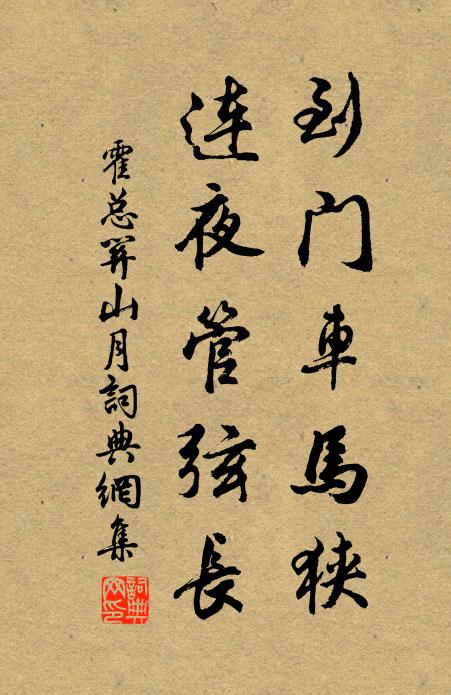 到门車馬狹
連夜管弦長
霍总関山月詞典網集
詞典网印